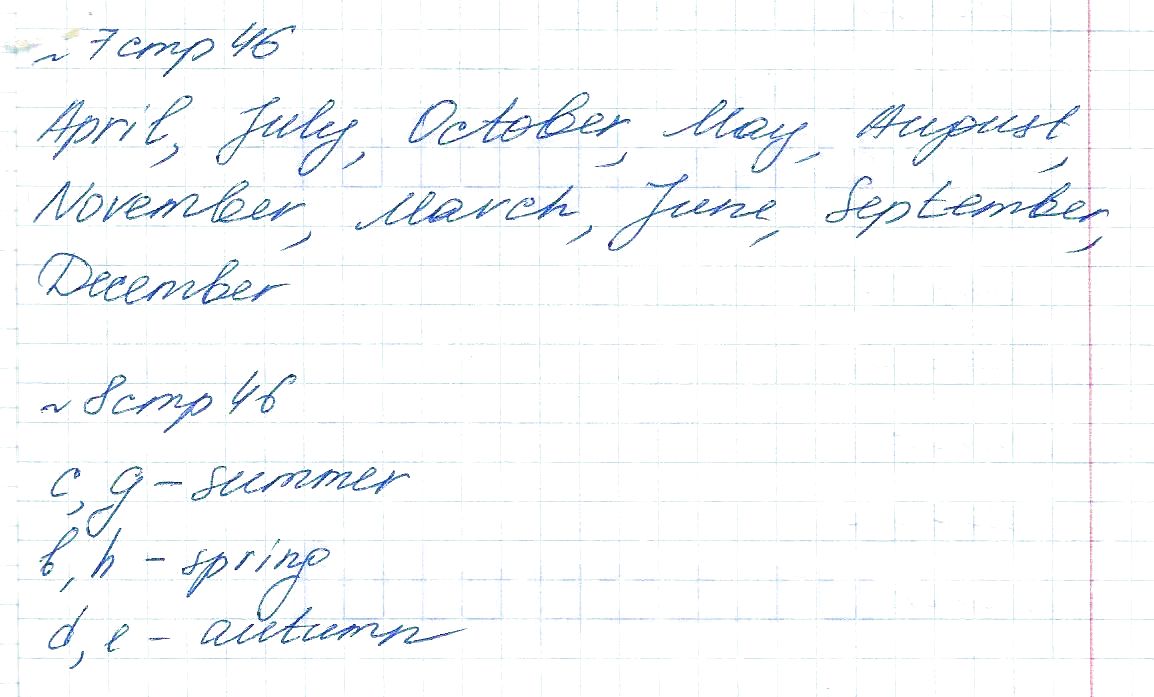 ~ 7 стр 46
April, July, October, May, August,
November, March, June, September,
December
~ 8 стр 46
c, g – summer
b, h – spring
d, e – autumn